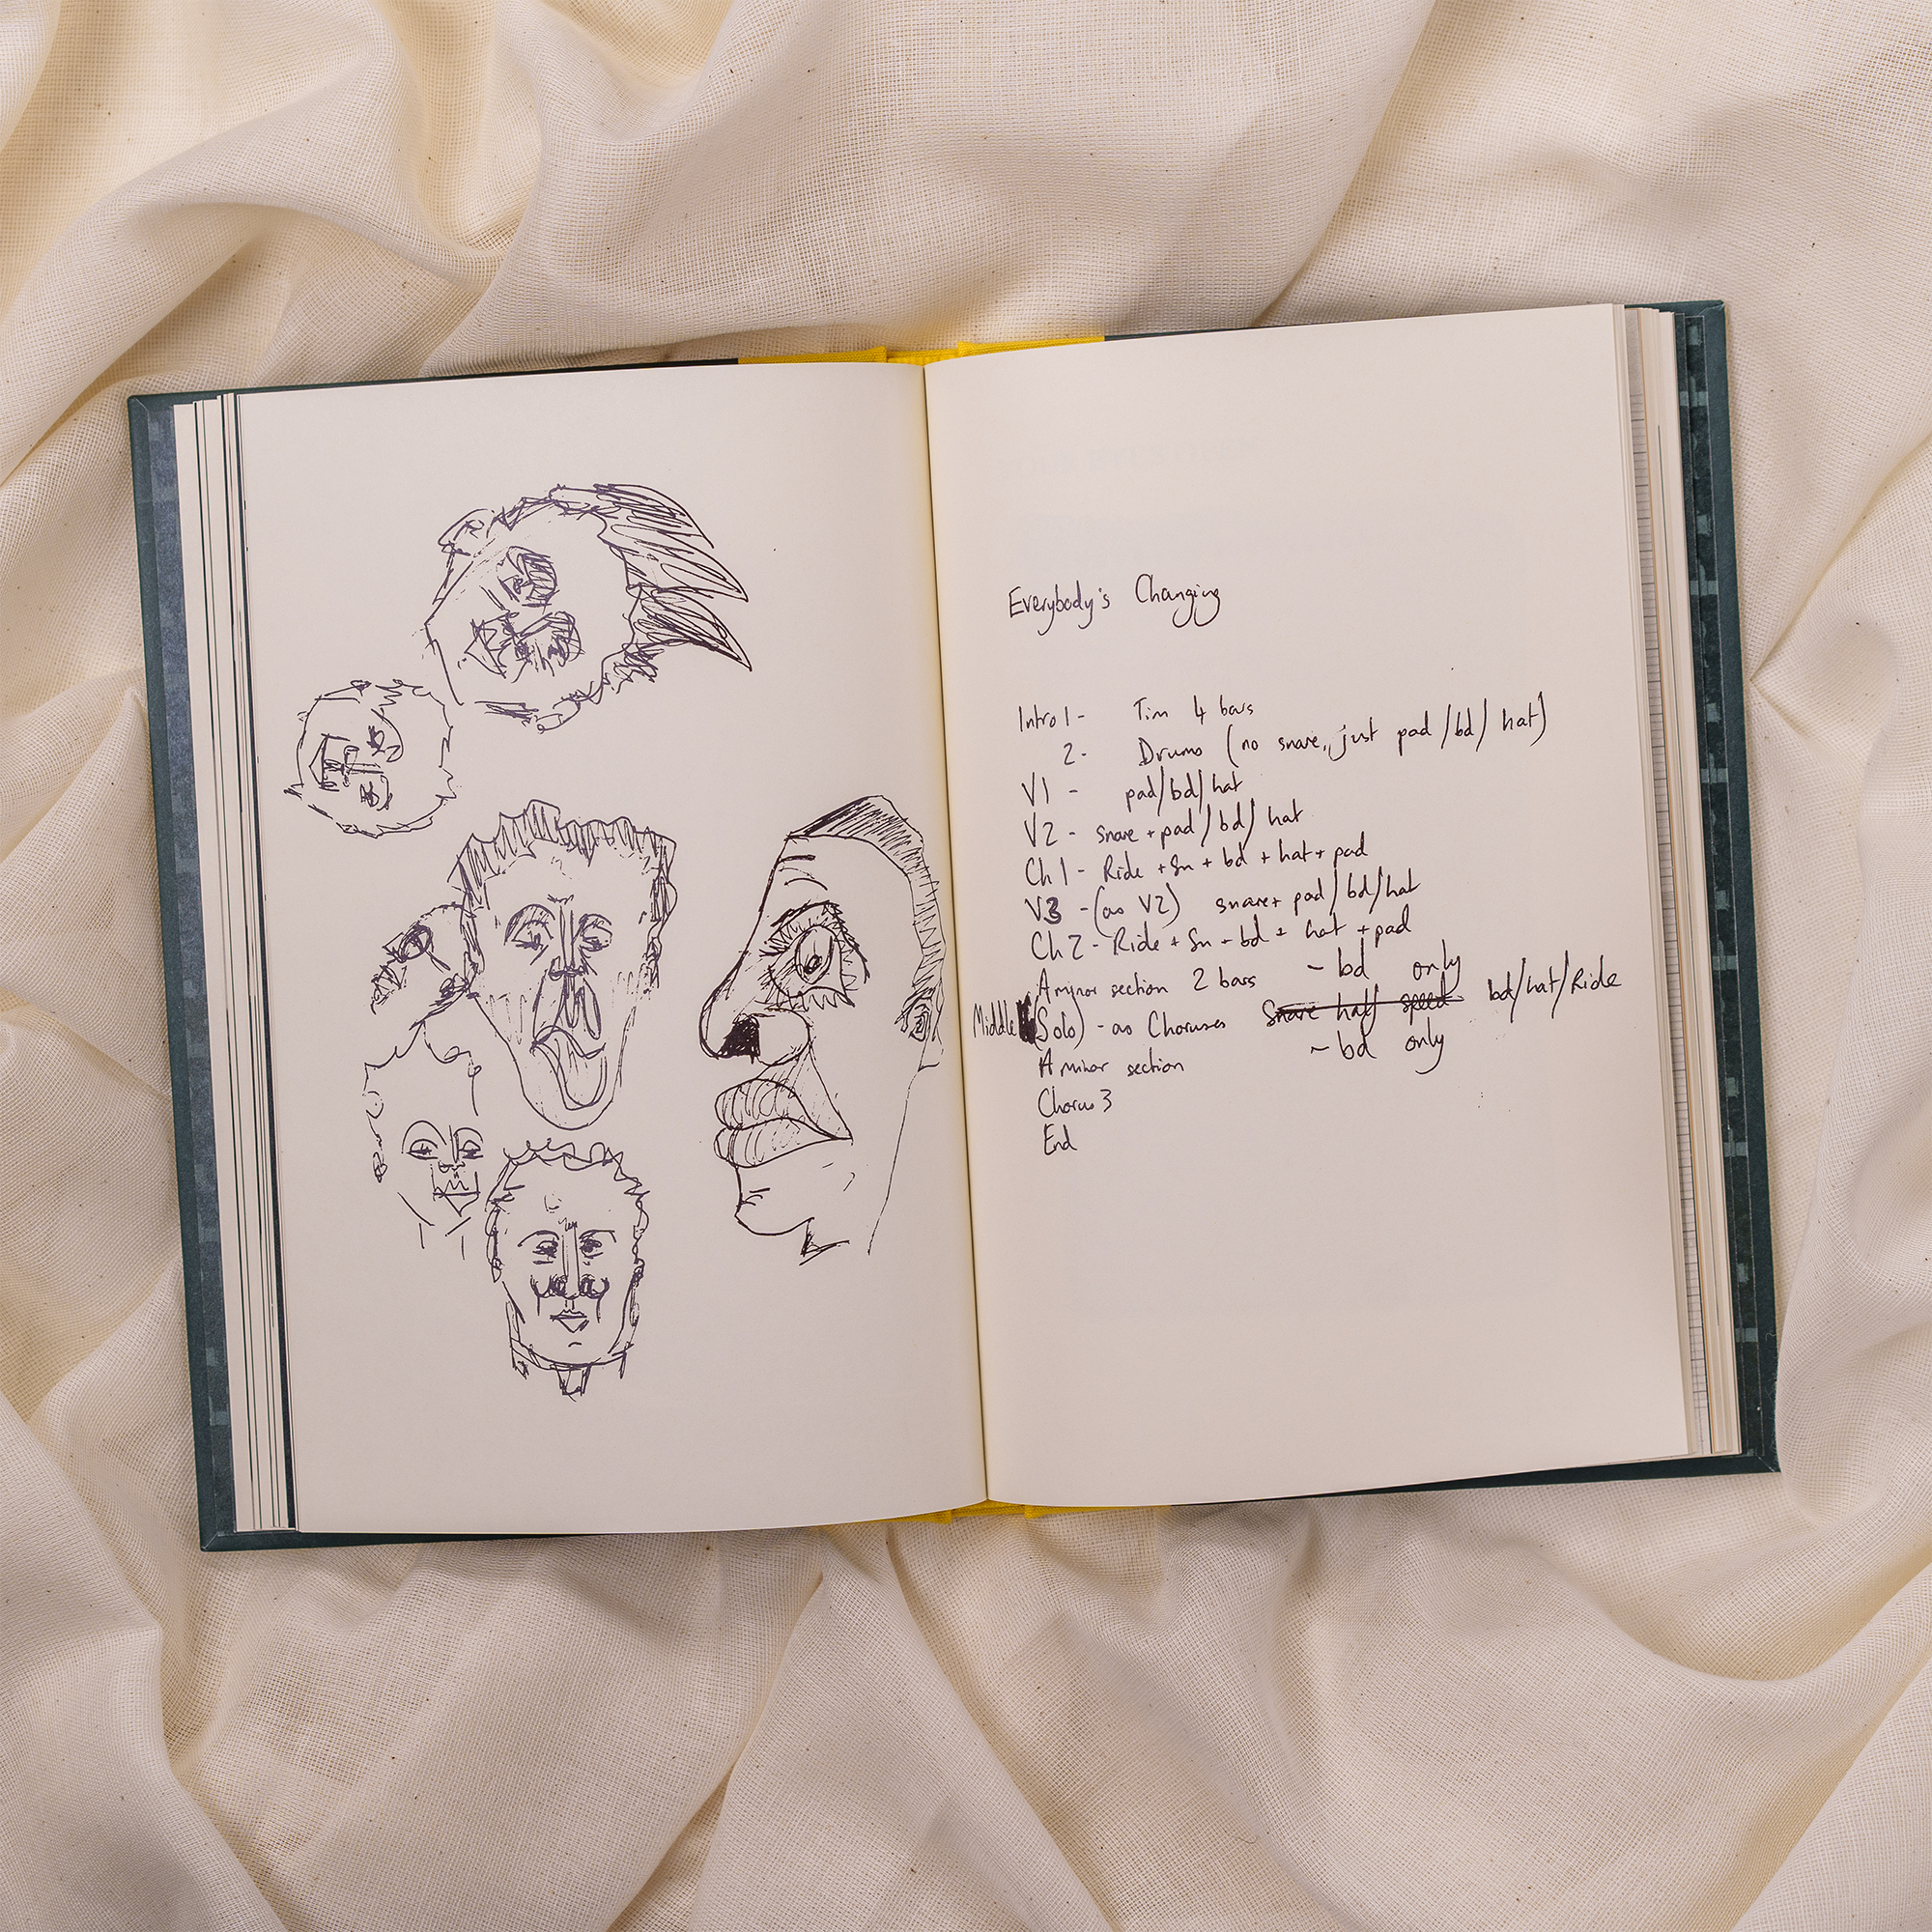 Everybody's Changing
Intro 1 - Tim 4 bars
2 - Drums (no snare, just pad/bd/hat)
V1 - pad/bd/hat
V2 - snare + pad/bd/hat
Ch 1 - Ride + Sn + bd + hat + pad
V3 - (as V2) snare + pad/bd/hat
Ch 2 - Ride + Sn + bd + hat + pad
A minor section 2 bars - bd only
Middle (Solo) - as Choruses Snare half speed bd/hat/Ride
A minor section - bd only
Chorus 3
End